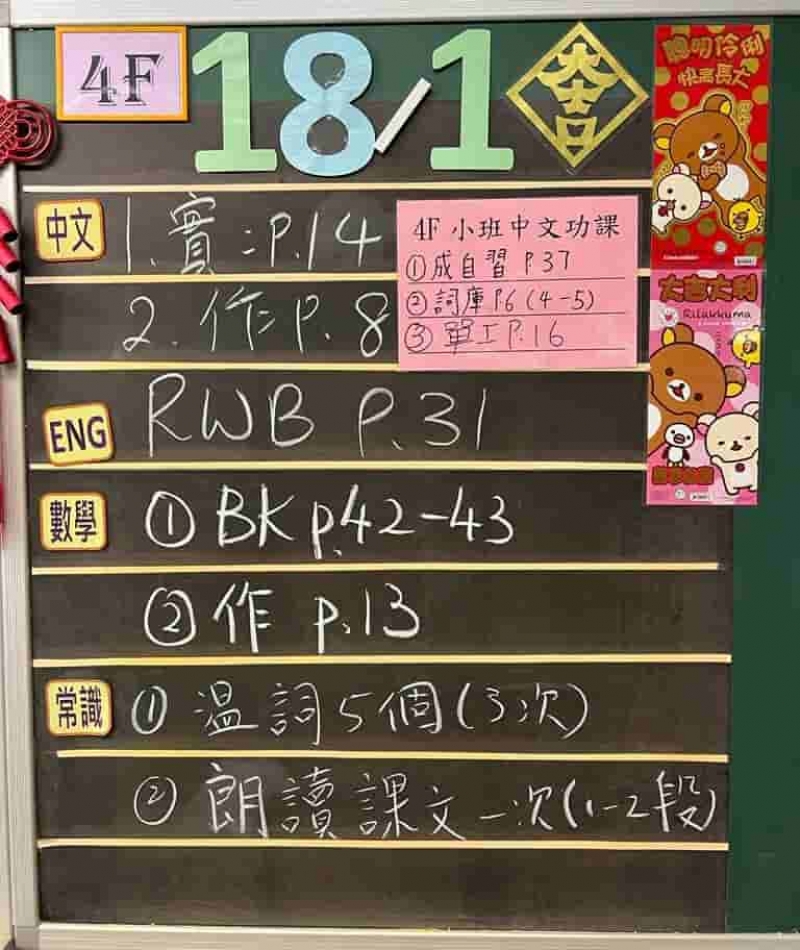 4F 18/1
大吉
聰明伶俐
快高長大
中文 1. 實:P.14
2. 作:P.8
4F 小班中文功課
①成自習 P37
②詞庫 P6(4-5)
③單工P.16
大吉大利
Rilakkuma
ENG RWB P.31
數學 ①BK p.42-43
②作 p.13
常識 ① 温詞5個(3次)
② 朗讀課文一次(1-2段)